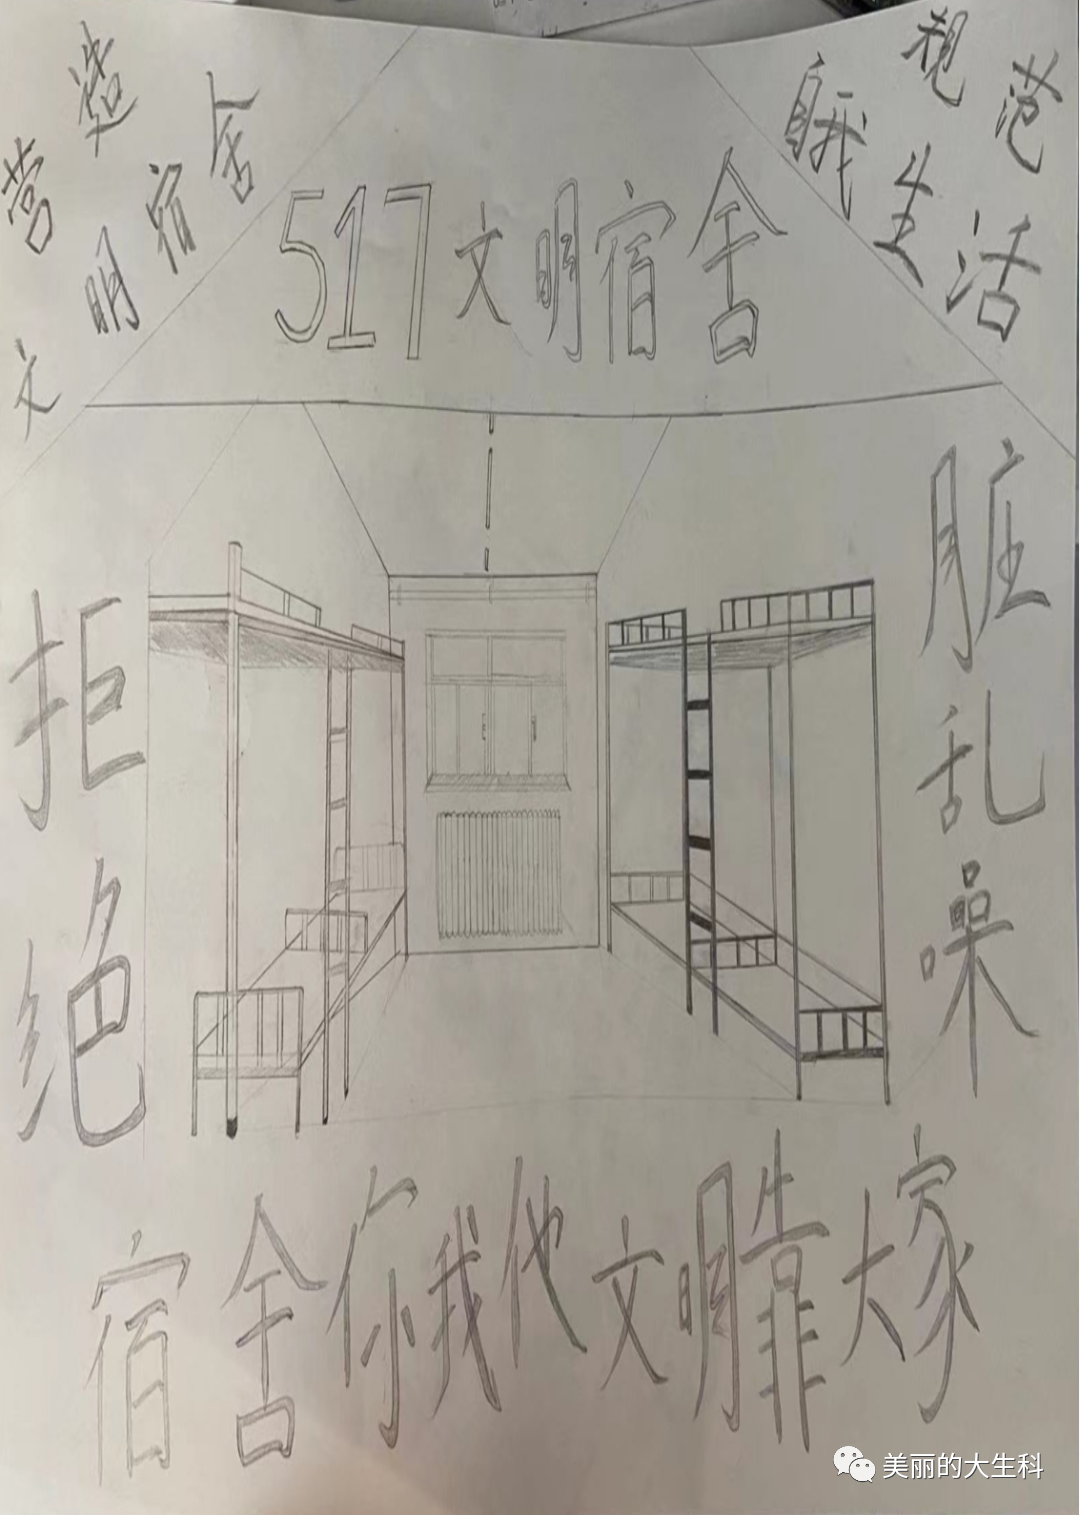 营造
文明宿舍
规范
自我生活
517文明宿舍
拒绝
脏乱噪
宿舍你我他文明靠大家
美丽的大生科